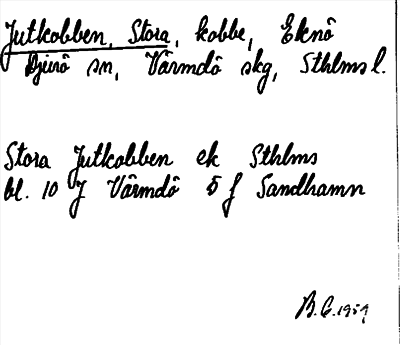 Jutkobben, Stora, kobbe, Eknö
Djurö sn, Värmdö skg, Sthlms l.
Stora Jutkobben ek Sthlms
bl. 10 J Värmdö 5 f Sandhamn
B.G.